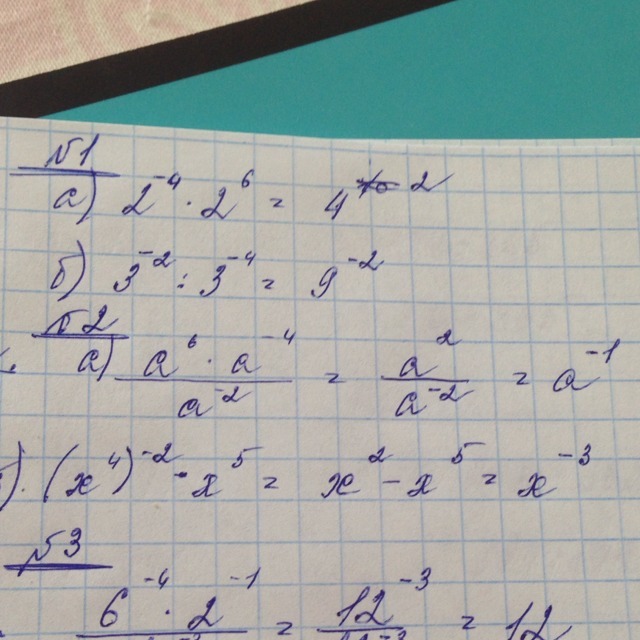 №1
а) 2⁻⁴ · 2⁶ = 4²
б) 3⁻² : 3⁻⁴ = 9⁻²
№2
а) (a⁶ · a⁻⁴)/(a⁻²) = a²/a⁻² = a⁻¹
). (x⁴)⁻² - x⁵ = x² - x⁵ = x⁻³
№3
6⁻⁴ · 2⁻¹ = 12⁻³ = 12